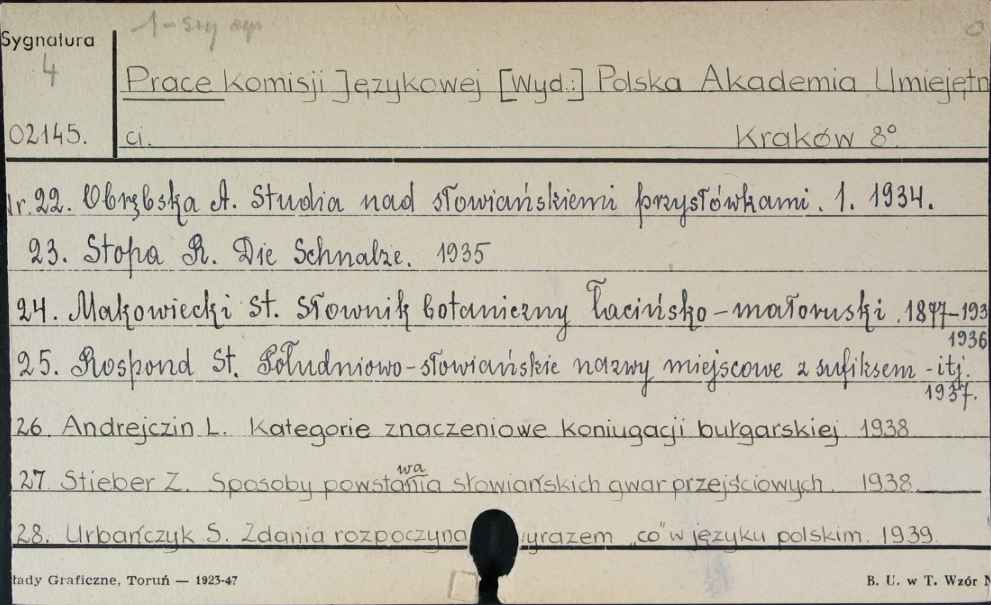 1 - szy egz
Sygnatura
4
Prace Komisji Językowej [Wyd.:] Polska Akademia Umiejętn
02145. ci. Kraków 8°
Nr. 22. Obrębska A. Studia nad słowiańskiemi przysłówkami. 1. 1934.
23. Stopa R. Die Schnalze. 1935
24. Makowiecki St. Słownik botaniczny łacińsko-małoruski. 1877-193
1936
25. Rospond St. Południowo-słowiańskie nazwy miejscowe z sufiksem -itj.
1937.
26. Andrejczin L. Kategorie znaczeniowe koniugacji bułgarskiej 1938
wa
27. Stieber Z. Sposoby powstania słowiańskich gwar przejściowych. 1938
28. Urbańczyk S. Zdania rozpoczyna yrazem „co" w języku polskim. 1939.
łady Graficzne, Toruń — 1923-47 B. U. w T. Wzór N